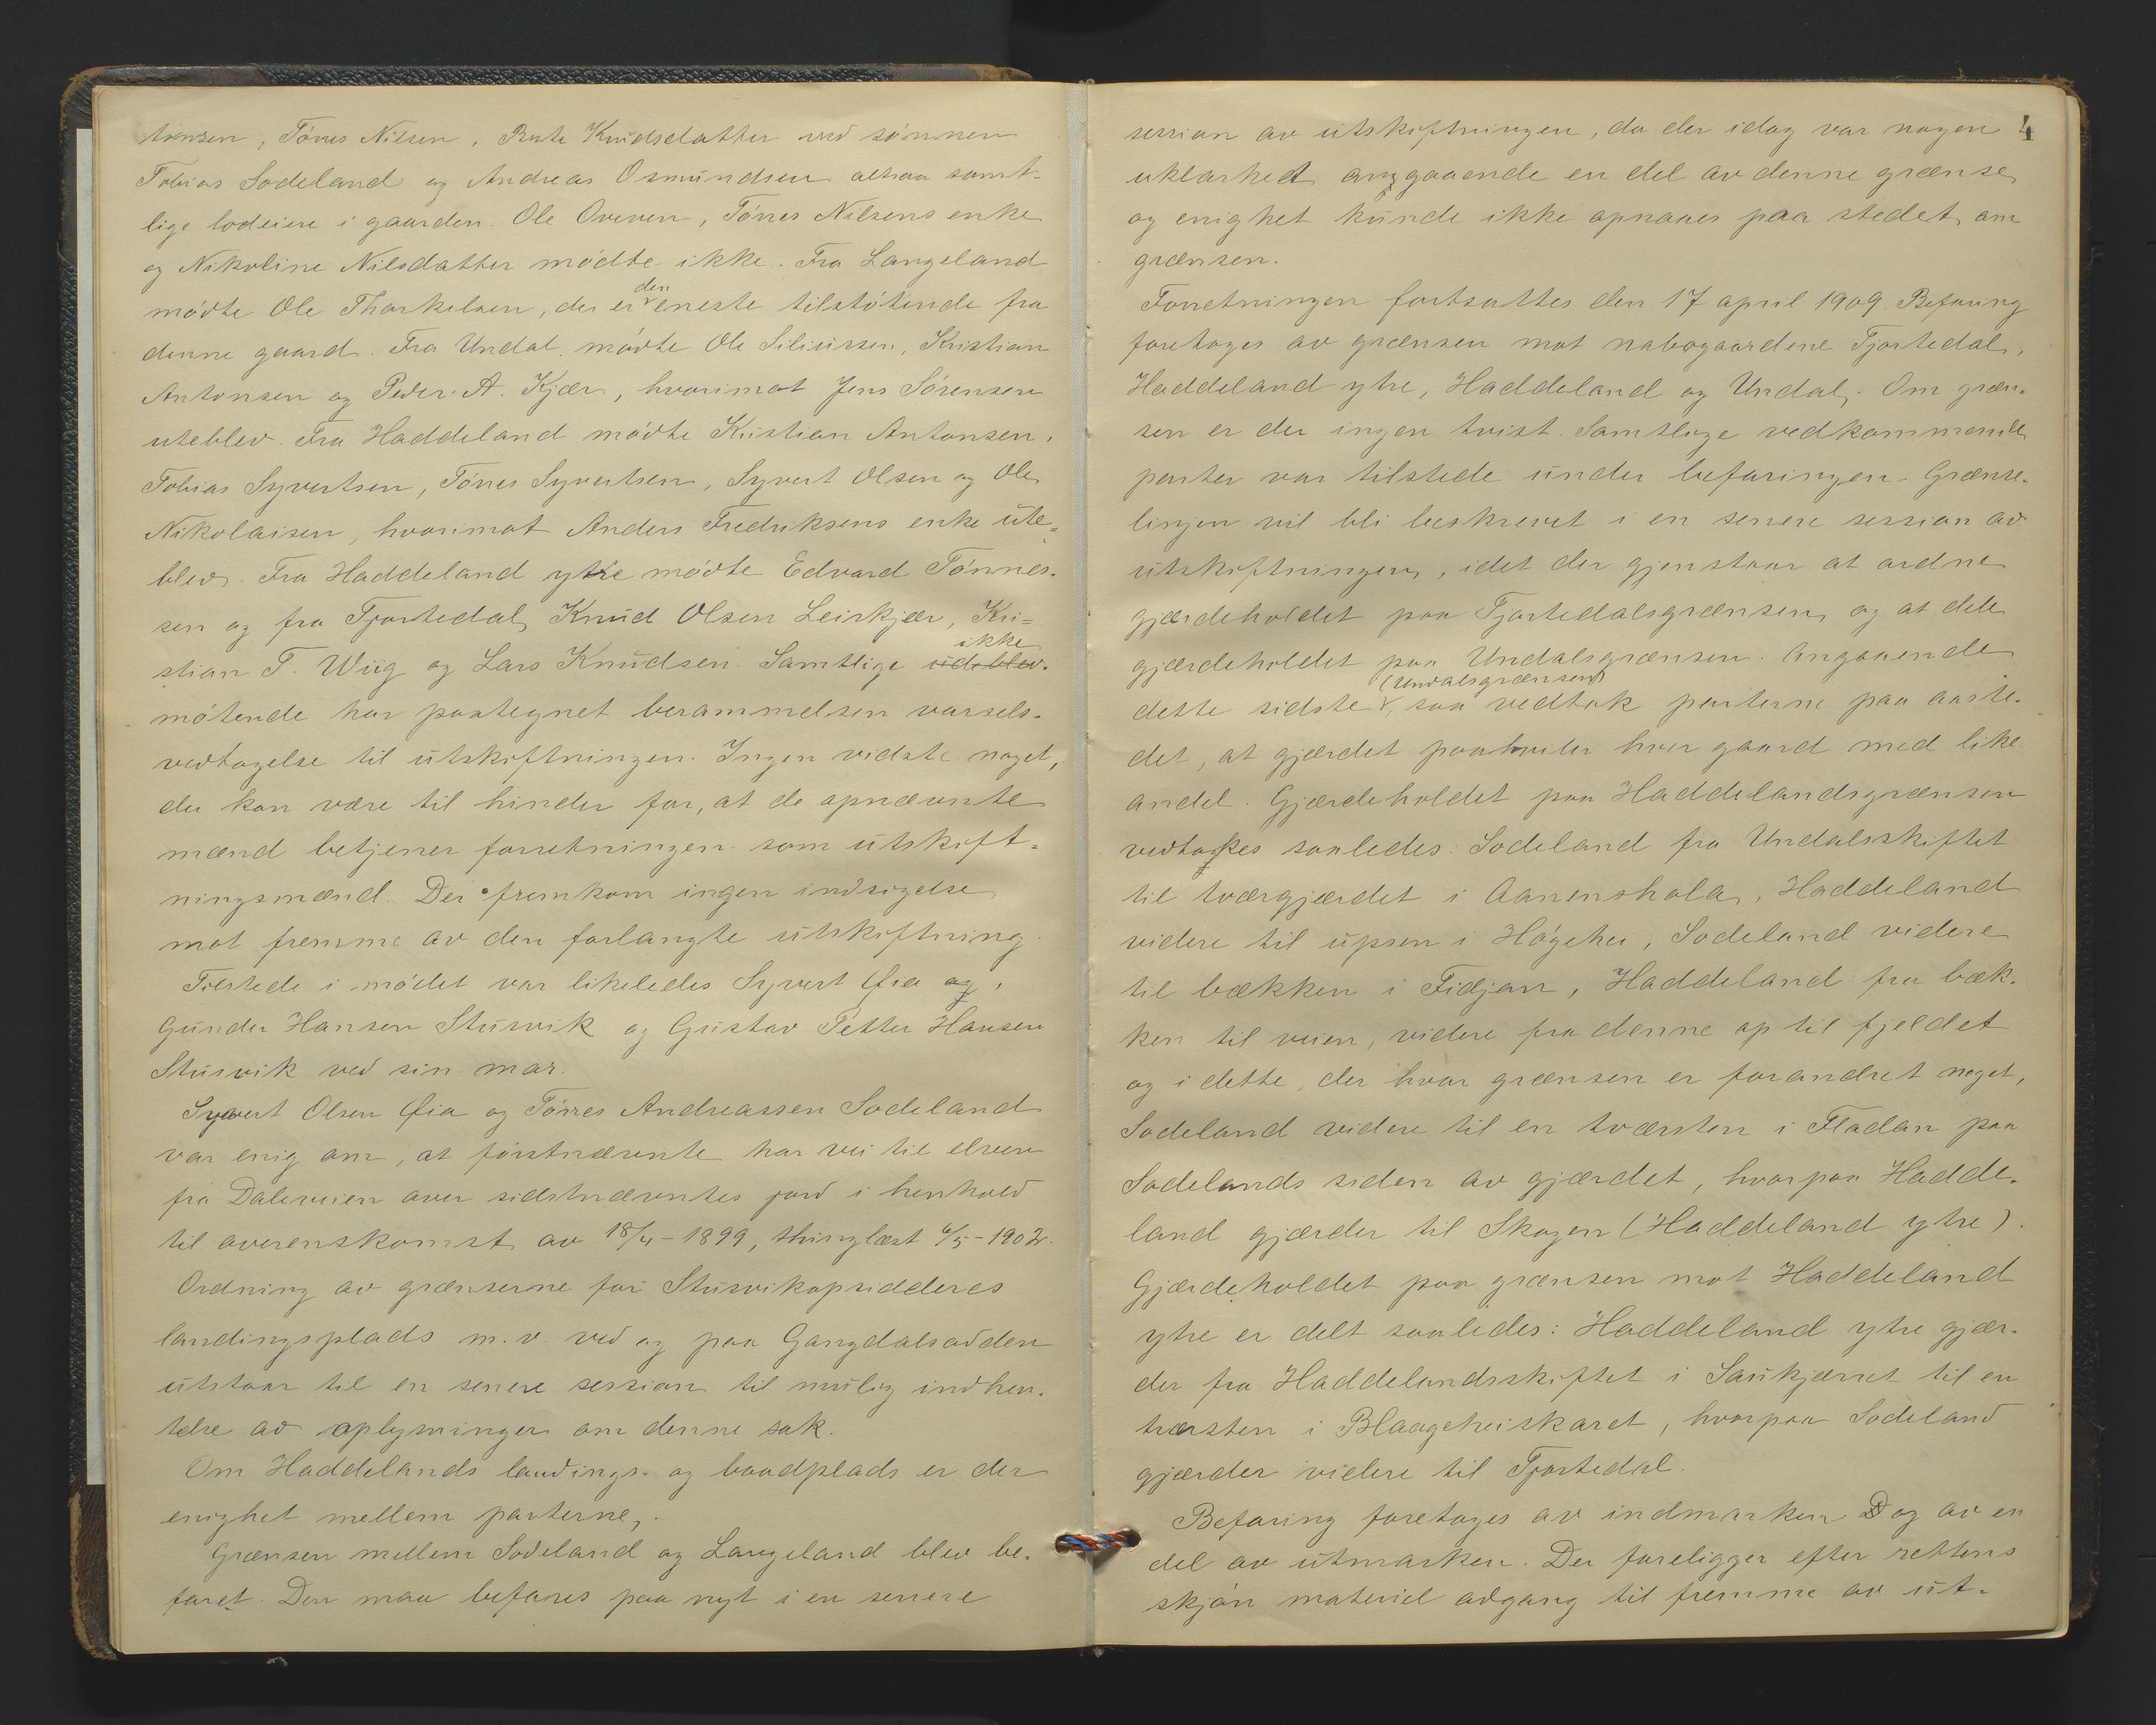 tensen, Tónes Nilsen, Berte Knudsdatter ved sønnen
Tobias Sodeland og Andreas Osmundsen altsaa samt-
lige lodeiere i gaarden. Ole Overen, Tónes Nilsens enke
og Nikoline Nilsdatter mødte ikke. Fra Langeland
mødte Ole Thorkelsen, der er den eneste tilstøtende fra
denne gaard. Fra Undal mødte Ole Siliussen, Kristian
Antonsen og Peder A. Kjær, hvorimot Jens Sørensen
uteblev. Fra Haddeland mødte Kristian Antonsen,
Tobias Syvertsen, Tónes Syvertsen, Syvert Olsen og Ole
Nikolaisen, hvorimot Anders Fredriksens enke ute-
blev. Fra Haddeland ytre mødte Edvard Tønnes-
sen og fra Tjostedal Knud Olsen Leirkjær, Kri-
stian T. Wiig og Lars Knudsen. Samtlige ikke udeblev.
møtende har paategnet berammelsen varsels-
vedtagelse til utskiftningen. Ingen vidste noget,
der kan være til hinder for, at de opnævnte
mænd betjener forretningen som utskift-
ningsmænd. Der fremkom ingen indsigelse
mot fremme av den forlangte utskiftning.
Tilstede i mødet var likeledes Syvert Øia og,
Gunder Hansen Stusvik og Gustav Petter Hansen
Stusvik ved sin mor.
Syvert Olsen Øia og Tórres Andreassen Sodeland
var enig om, at førstnævnte har vei til elven
fra Daleveien over sidstnævntes jord i henhold
til overenskomst av 18/4-1899, thinglæst 6/5-1902.
Ordning av grænserne for Stusvikopsidderes
landingsplads m.v. ved og paa Gangdalsodden
utstaar til en senere session til mulig indhen-
telse av oplysninger om denne sak.
Om Haddelands landings- og baadplads er der
enighet mellem parterne,.
Grænsen mellem Sodeland og Langeland blev be-
faret. Den maa befares paa nyt i en senere
4
session av utskiftningen, da der idag var nogen
uklarhet angaaende en del av denne grænse,
og enighet kunde ikke opnaaes paa stedet om
grænsen.
Forretningen fortsattes den 17 april 1909. Befaring
foretoges av grænsen mot nabogaardene Tjostedal,
Haddeland ytre, Haddeland og Undal. Om græn-
sen er der ingen tvist. Samtlige vedkommende
parter var tilstede under befaringen. Grænse-
linjen vil bli beskrevet i en senere session av
utskiftningen, idet der gjenstaar at ordne
gjærdeholdet paa Tjostedalsgrænsen og at dele
gjærdeholdet paa Undalsgrænsen. Angaaende
dette sidste (Undalsgrænsen), saa vedtok parterne paa aaste-
det, at gjærdet paahviler hver gaard med like
andel. Gjærdeholdet paa Haddelandsgrænsen
vedtokes saaledes: Sodeland fra Undalsskiftet
til tværgjærdet i Aanenshola, Haddeland
videre til upsen i Høgehei, Sodeland videre
til bækken i Fidjan, Haddeland fra bæk-
ken til veien, videre fra denne op til fjeldet
og i dette, der hvor grænsen er forandret noget,
Sodeland videre til en tværsten i Fladan paa
Sodelands siden av gjærdet, hvorpaa Hadde-
land gjærder til Skagen (Haddeland ytre).
Gjærdeholdet paa grænsen mot Haddeland
ytre er delt saaledes: Haddeland ytre gjær-
der fra Haddelandsskiftet i Saukjærret til en
tværsten i Blaageheiskaret, hvorpaa Sodeland
gjærder videre til Tjostedal.
Befaring foretoges av indmarken og av en
del av utmarken. Der foreligger efter rettens
skjøn materiel adgang til fremme av ut-